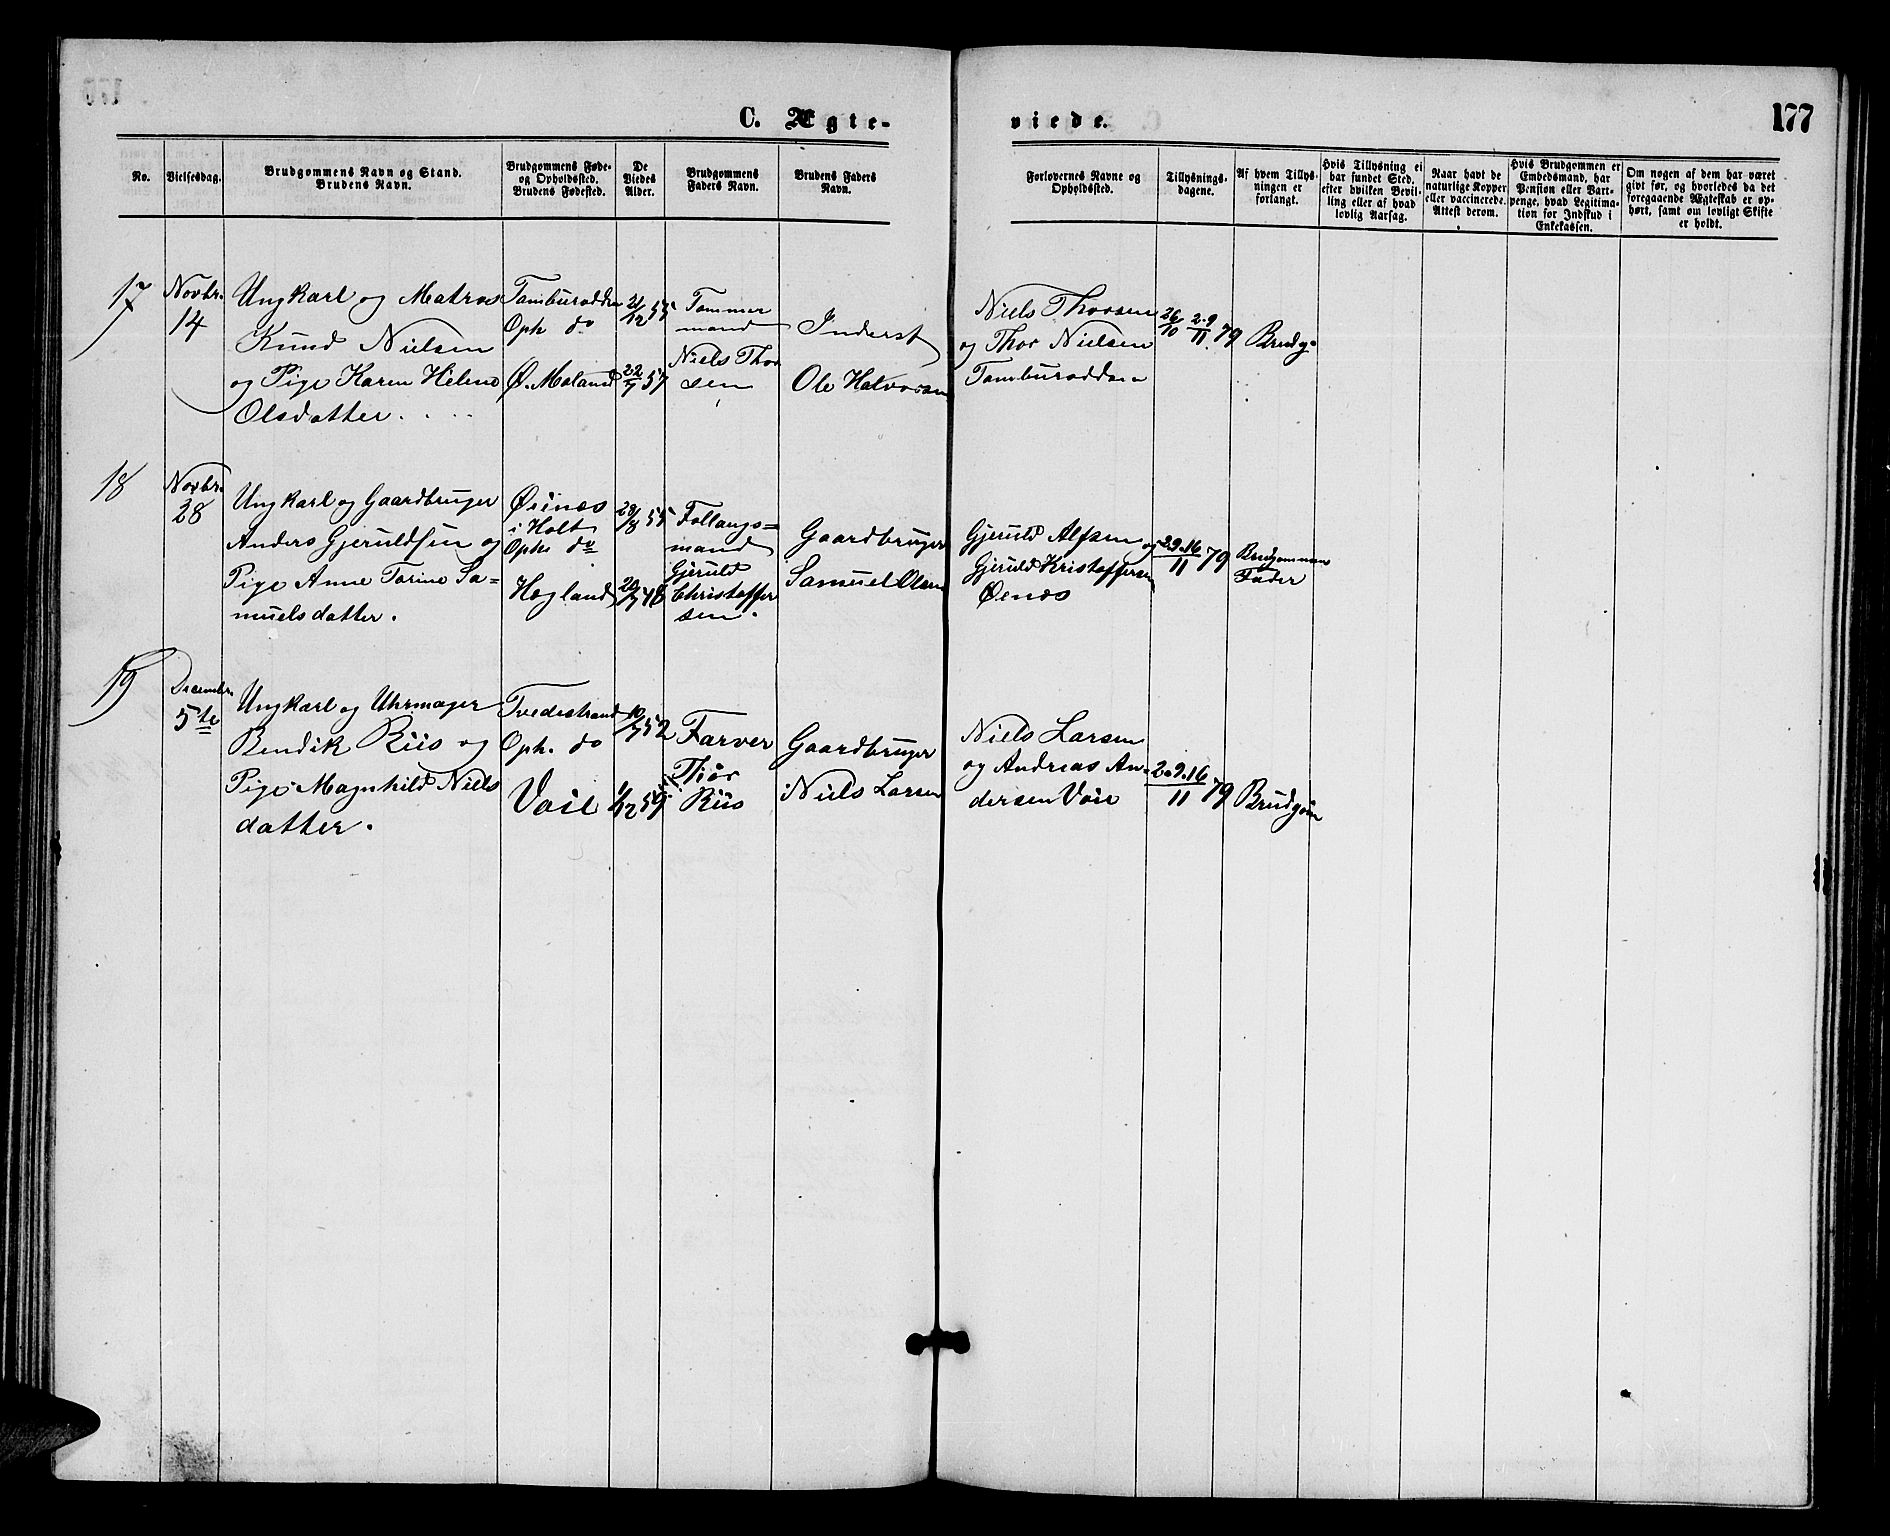 C. Ægte-
viede.
177
No.
Vielsesdag.
Brudgommens Navn og Stand.
Brudens Navn.
Brudgommens Føde-
og Opholdssted.
Brudens Fødested.
De
Viedes
Alder.
Brudgommens
Faders Navn.
Brudens Faders
Navn.
Forlovernes Navne og
Opholdssted.
Tillysnings-
dagene.
Af hvem Tillys-
ningen er
forlangt.
Hvis Tillysning ei
har fundet Sted,
efter hvilken Bevil-
ling eller af hvad
lovlig Aarsag.
Naar havt de
naturlige Kopper
eller vaccinerede.
Attest derom.
Hvis Brudgommen er
Embedsmand, har
Pension eller Vart-
penge, hvad Legitima-
tion for Indskud i
Enkekassen.
Om nogen af dem har været
givt før, og hvorledes da det
foregaaende Ægteskab er op-
hørt, samt om lovligt Skifte
er holdt.
17
Novbr.
14
Ungkarl og Matros
Knud Nielsen
og Pige Karen Helene
Olsdatter. . . . .
Tamburodden
Oph do
Ø. Moland
21/12 55
22/7 57
Tømmer
mand
Niels Thor
sen
Inderst
Ole Halvorsen
Niels Thorsen
og Thor Nielsen
Tamburodden
26/10 2.9/11 79
Brudg.
18
Novbr.
28
Ungkarl og Gaardbruger
Anders Gjeruldsen og
Pige Anne Torine Sa-
muelsdatter.
Øeinæs
i Holt
Oph. do
Hogland
28/8 55
20/7 48
Follaugs=
mand
Gjeruld
Christoffer
sen.
Gaardbruger
Samuel Olsen
Gjeruld Alfsen og
Gjeruld Kristoffersen
Øenæs
2.9.16/11 79
Brudgommens
Fader
19
Decembr.
5te
Ungkarl og Uhrmager
Bendik Riis og
Pige Magnhild Niels
datter.
Tvedestrand
Oph. do
Voie
10/7 52
1/12 59
Farver
Thor
Riis
Gaardbruger
Niels Larsen
Niels Larsen
og Andreas An-
dersen Voie
2.9.16/11 79
Brudgom